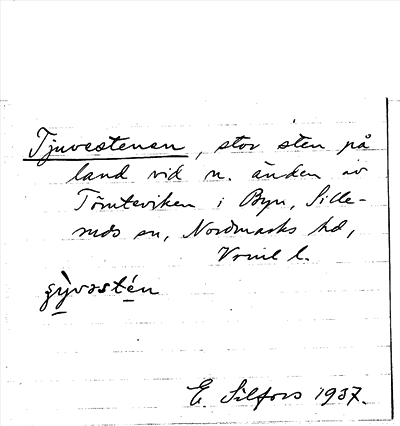 Tjuvestenen, stor sten på
land vid n. änden av
Tömteviken i Byn, Sille-
ruds sn, Nordmarks hd,
Vrml l.
ʂy̍vəstén
E. Silfors 1937.